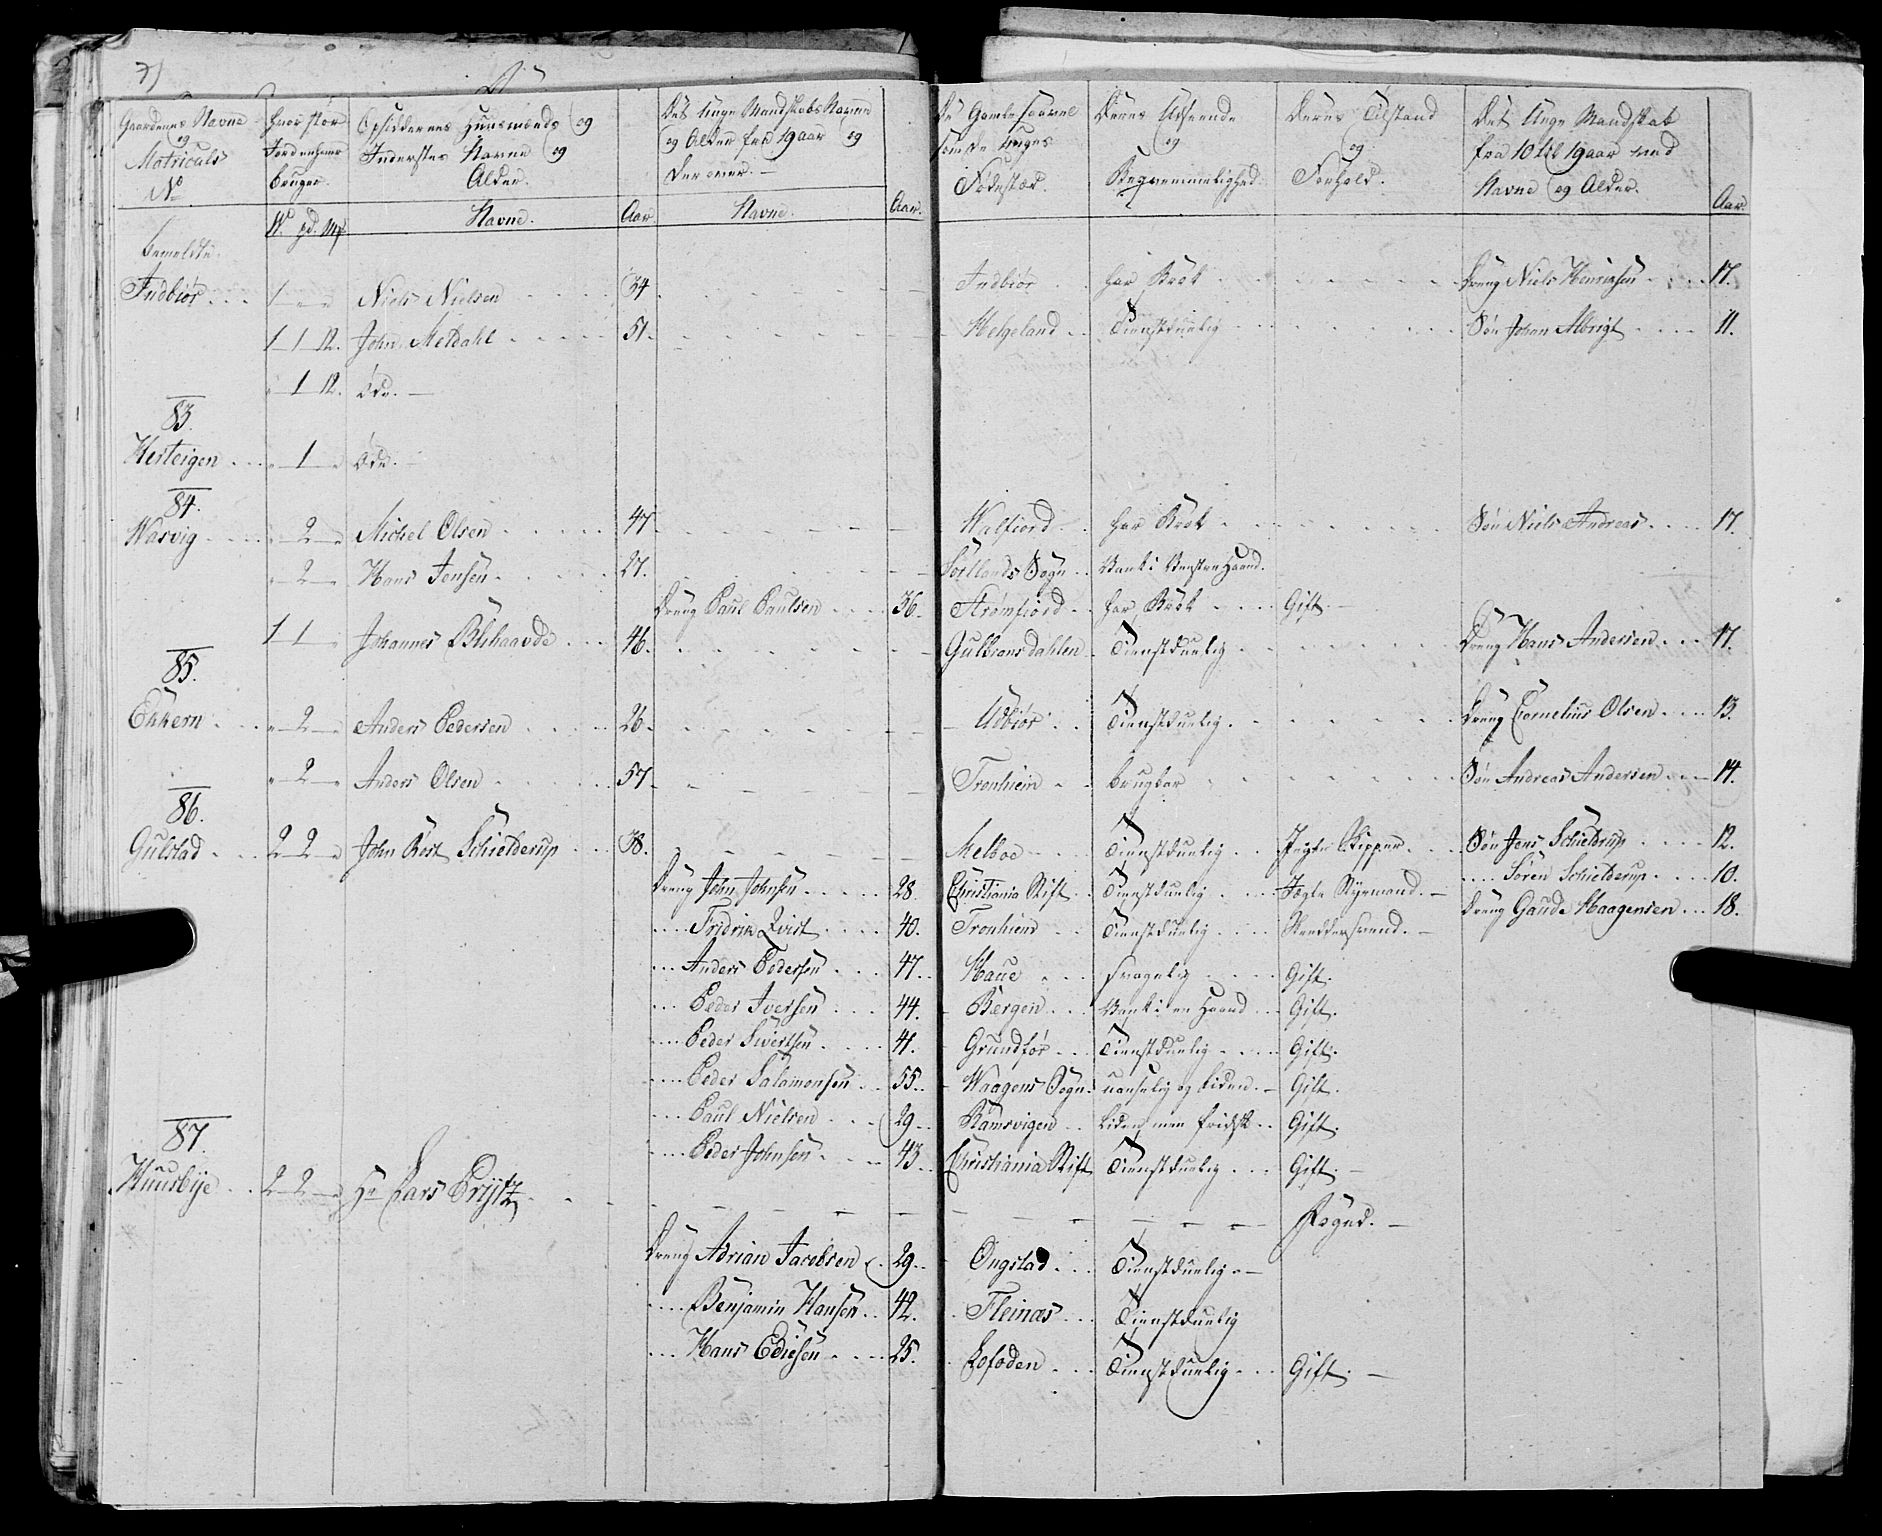 7)
Gaardenes Navne og Matriculs No | hvor stor Jord enhver bruger. W. pd. Mk | Opsiddernes Huusmænds og Inderstes Navne og Alder. Navne. Aar. | Det Unge Mandskabs Navne og Alder fra 19 aar og derover.– Navne. Aar. | De Gamles saavel som de Unges Fødestæd. | Deres Udseende og Beqvemmelighed. | Deres Tilstand og Forhold. | Det Unge Mandskab fra 10 til 19 aar med Navne og Alder. Aar.
bemeldte
Indbiør 1 Niels Nielsen 34 Indbiør har Brok Dreng Niels Henrichsen 17.
1 1 12. John Meldahl 51. Helgeland Tienstduelig Søn Johan Albrigt 11.
1 12. Øde.
83.
Hesteigen 1 Øde.
84.
Warvig 2 Michel Olsen 47 Walfiord har Brok Søn Niels Andreas 17.
2 Hans Jensen 27. Sortlands Sogn Vank i Venstre Haand.
Dreng Paul Paulsen 36. Strømfiord har Brok Gift.
1 1 Johannes Blehaavde 46. Gulbransdahlen Tienstduelig Dreng Hans Andersen 17.
85.
Ekkern 2 Anders Pedersen 26 Udbiør Tienstduelig Dreng Cornelius Olsen 13.
2 Anders Olsen 57. Tronhiem brugbar Søn Andreas Andersen 14.
86.
Gulstad 2 2 John Røst Schielderup 38. Melboe Tienstduelig Jegte Skipper Søn Jens Schieldrup 12.
Dreng John Johnsen 28. Christiania Stift Tienstduelig Jegte Styrmand. Søren Schielderup 10.
Fridrik Qvist 40. Tronhiem Tienstduelig Dreng Gaude Haagensen 18.
Anders Pedersen 47. Haue svagelig Gift.
Peder Iversen 44. Bergen Vank i en Haand Gift.
Peder Sivertsen 41. Grundfør Tienstduelig Gift.
Peder Salamonsen 55. Waagens Sogn uanselig og liden. Gift.
Paul Nielsen 29. Ramsvigen liden men fridsk Gift.
Peder Johnsen 43. Christiania Stift Tienstduelig Gift.
87.
Huusbye 2 2 Hr Lars Prytz Foged.
Dreng Adrian Jacobsen 29. Ongstad Tienstduelig
Benjamin Hansen 42. Fleinæs Tienstduelig
Hans Ediesen 25. Lofoden Tienstduelig Gift.